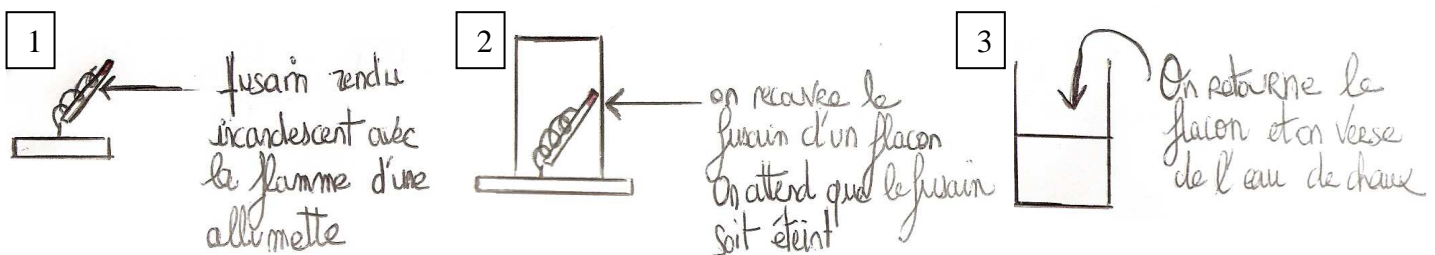 1
fusain rendu
incandescent avec
la flamme d'une
allumette
2
on recouvre le
fusain d'un flacon
On attend que le fusain
soit éteint
3
On retourne le
flacon et on verse
de l'eau de chaux